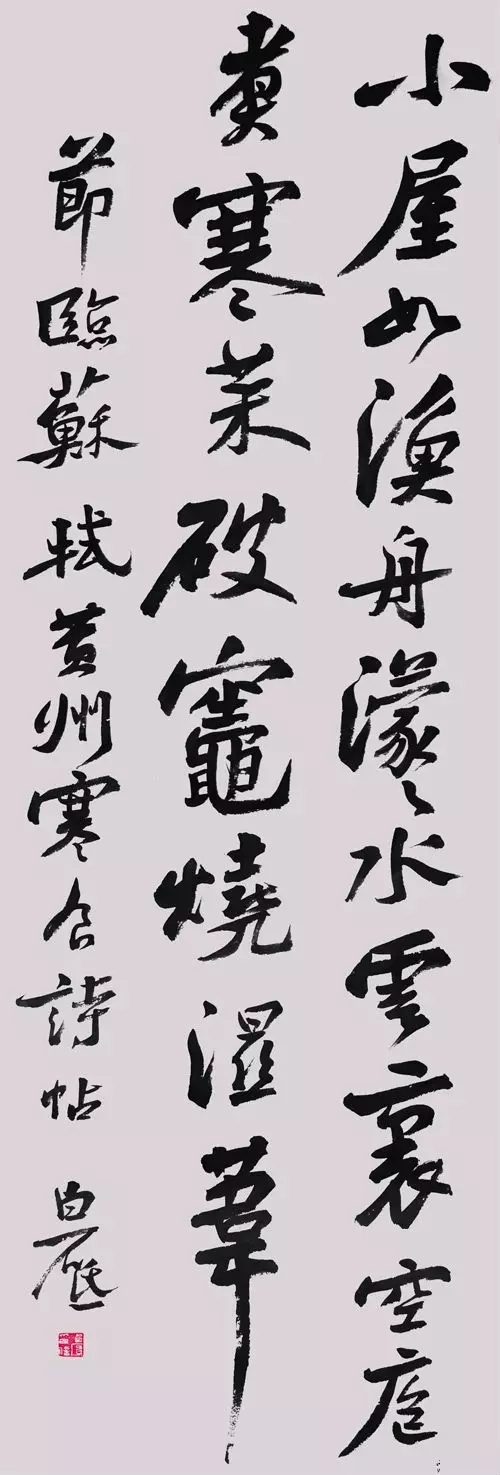 小屋如漁舟濛々水雲裏空庖
煮寒菜破竈燒濕葦
節臨蘇軾黄州寒食詩帖 白砥